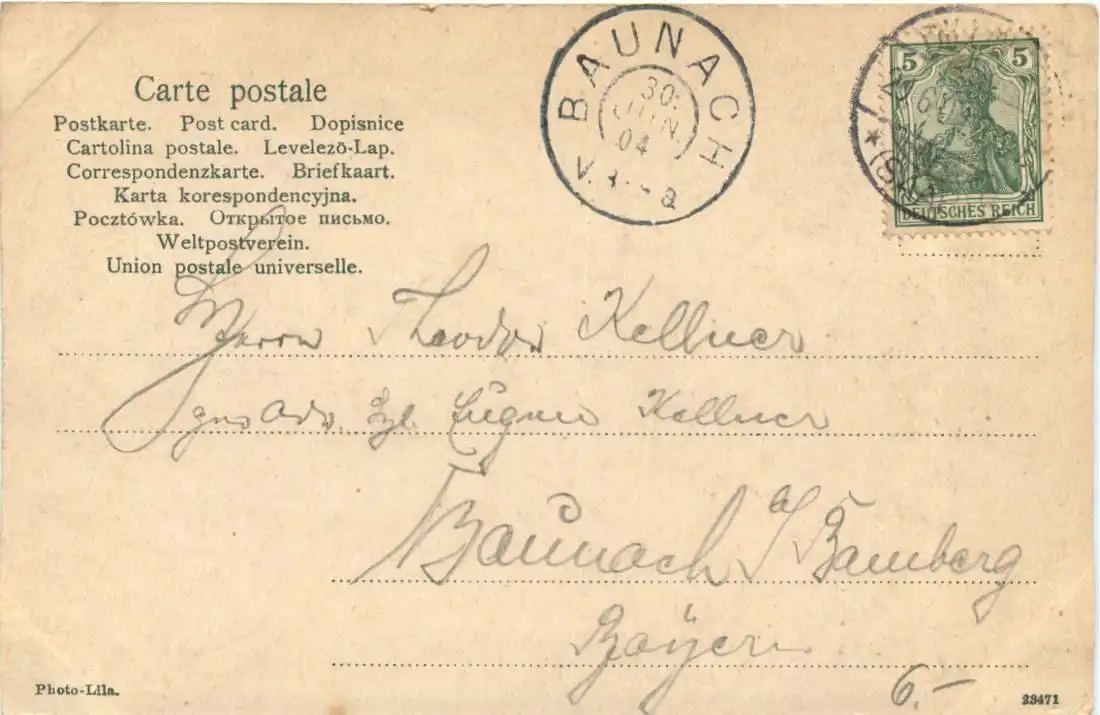 Carte postale
Postkarte. Post card. Dopisnice
Cartolina postale. Levelezō-Lap.
Correspondenzkarte. Briefkaart.
Karta korespondencyjna.
Pocztówka. Открытое письмо.
Weltpostverein.
Union postale universelle.
BAUNACH
30.
JUN.
04
5 5
DEUTSCHES REICH
Herrn Theodor Kellner
Adr. Eugen Kellner
Baunach a/ Bamberg
Bayern
6.-
Photo-Lila.
23471